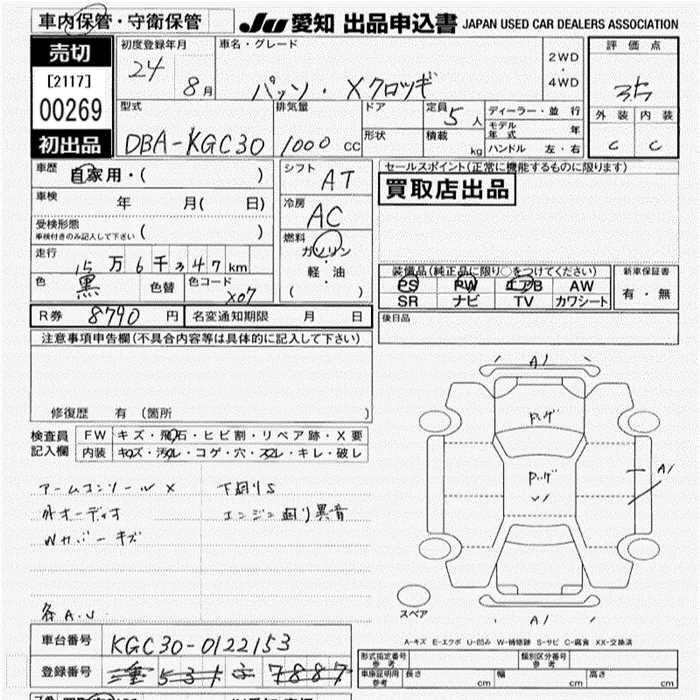 車内保管・守衛保管
JU 愛知 出品申込書 JAPAN USED CAR DEALERS ASSOCIATION
売切
[2117]
00269
初出品
初度登録年月
24 8月
車名・グレード
パッソ・Xクロッギ
2WD
・
4WD
評価点
3.5
外装 内装
C C
型式
DBA-KGC30
排気量
1000 CC
ドア
形状
定員 5 人
積載 kg
ディーラー・並行
モデル年式 年
ハンドル 左・右
車歴
自家用・( )
車検
年 月( 日)
受検形態
車検付きのみ記入して下さい ( )
走行
15万6千347km
色
黒
色替
色コード
X07
シフト
AT
冷房
AC
燃料
ガソリン
・
軽・油
( )
セールスポイント(正常に機能するものに限ります)
買取店出品
装備品(純正品に限り○をつけてください)
PS PW エアB AW
SR ナビ TV カワシート
新車保証書
有・無
R券 8790 円
名変通知期限 月 日
後日品
注意事項申告欄(不具合内容等は具体的に記入して下さい)
修復歴 有 (箇所 )
検査員
記入欄
FW キズ・飛石・ヒビ割・リペア跡・X要
内装 キズ・汚れ・コゲ・穴・スレ・キレ・破レ
アームコンソール X
外オーディオ
Wカバー キズ
下廻りS
エンジン廻り異音
各A.U
A1
A1
A1
スペア
A-キズ E-エクボ U-凹み W-補修跡 S-サビ C-腐食 XX-交換済
車台番号
KGC30-0122153
登録番号
531 7887
形式指定番号
参考
類別区分番号
参考
車庫証明用
参考
長さ cm
幅 cm
高さ cm